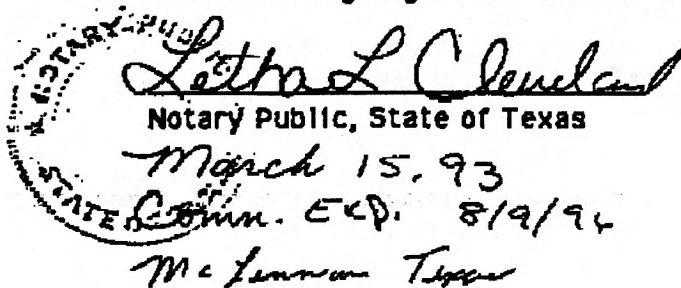 NOTARY PUB
STATE
Letha L Cleveland
Notary Public, State of Texas
March 15, 93
Comm. Exp. 8/9/96
McLennan Texas